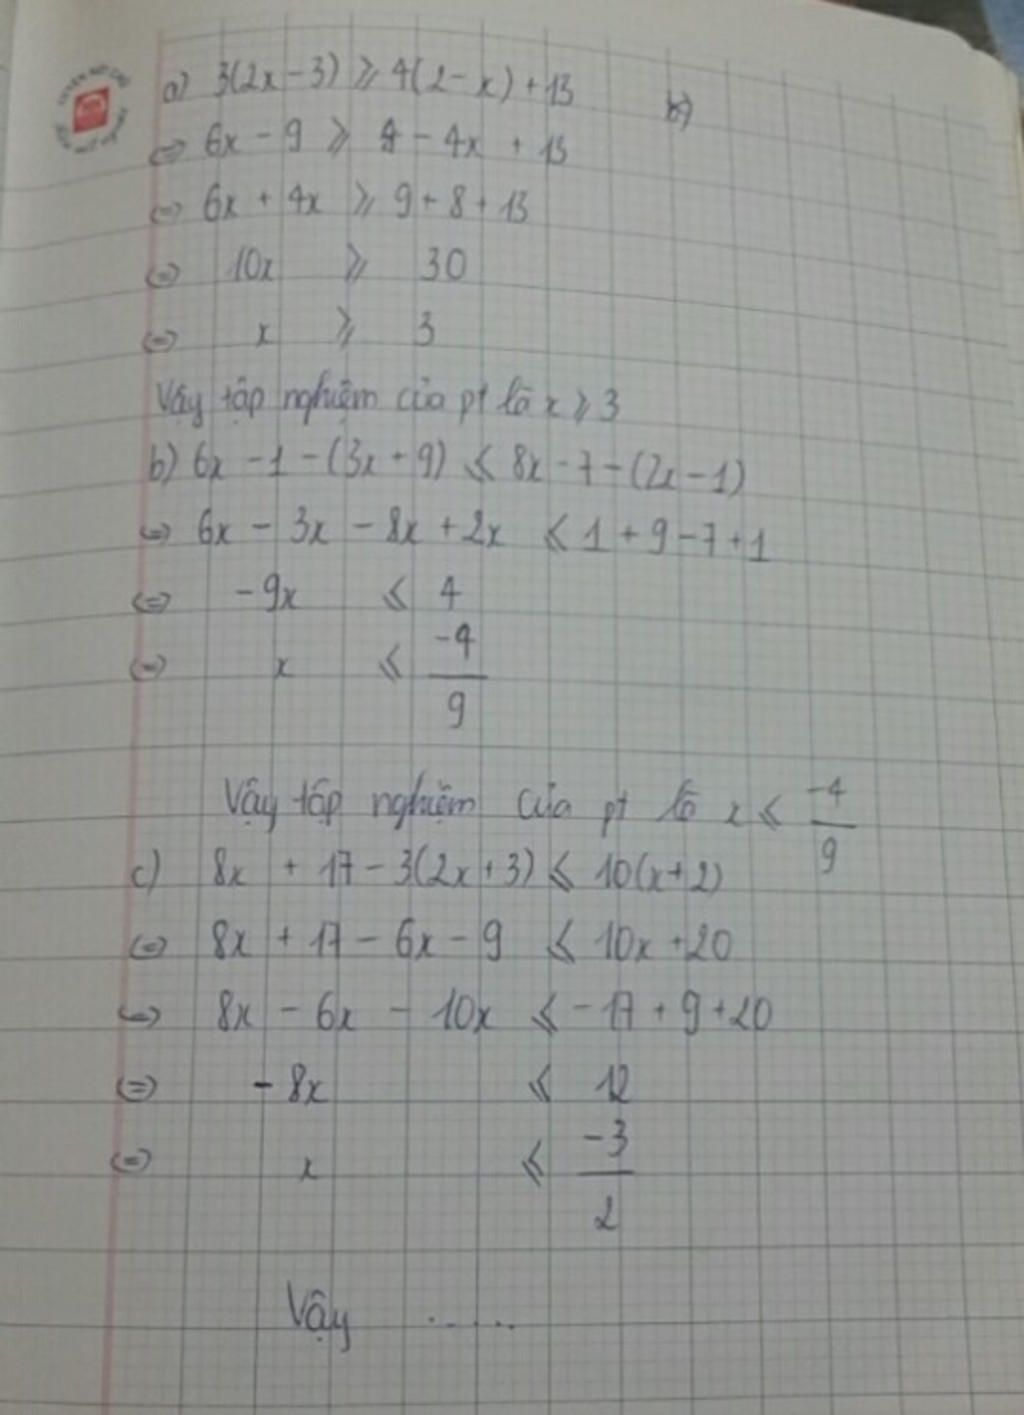 a) 3(2x - 3) ⩾ 4(2 - x) + 13
b)
⇔ 6x - 9 ⩾ 8 - 4x + 13
⇔ 6x + 4x ⩾ 9 + 8 + 13
⇔ 10x ⩾ 30
⇔ x ⩾ 3
Vậy tập nghiệm của pt là x ⩾ 3
b) 6x - 1 - (3x + 9) ⩽ 8x - 7 - (2x - 1)
⇔ 6x - 3x - 8x + 2x ⩽ 1 + 9 - 7 + 1
⇔ -9x ⩽ 4
⇔ x ⩽ -4/9
Vậy tập nghiệm của pt là x ⩽ -4/9
c) 8x + 17 - 3(2x + 3) ⩽ 10(x + 2)
⇔ 8x + 17 - 6x - 9 ⩽ 10x + 20
⇔ 8x - 6x - 10x ⩽ -17 + 9 + 20
⇔ -8x ⩽ 12
⇔ x ⩽ -3/2
Vậy .....